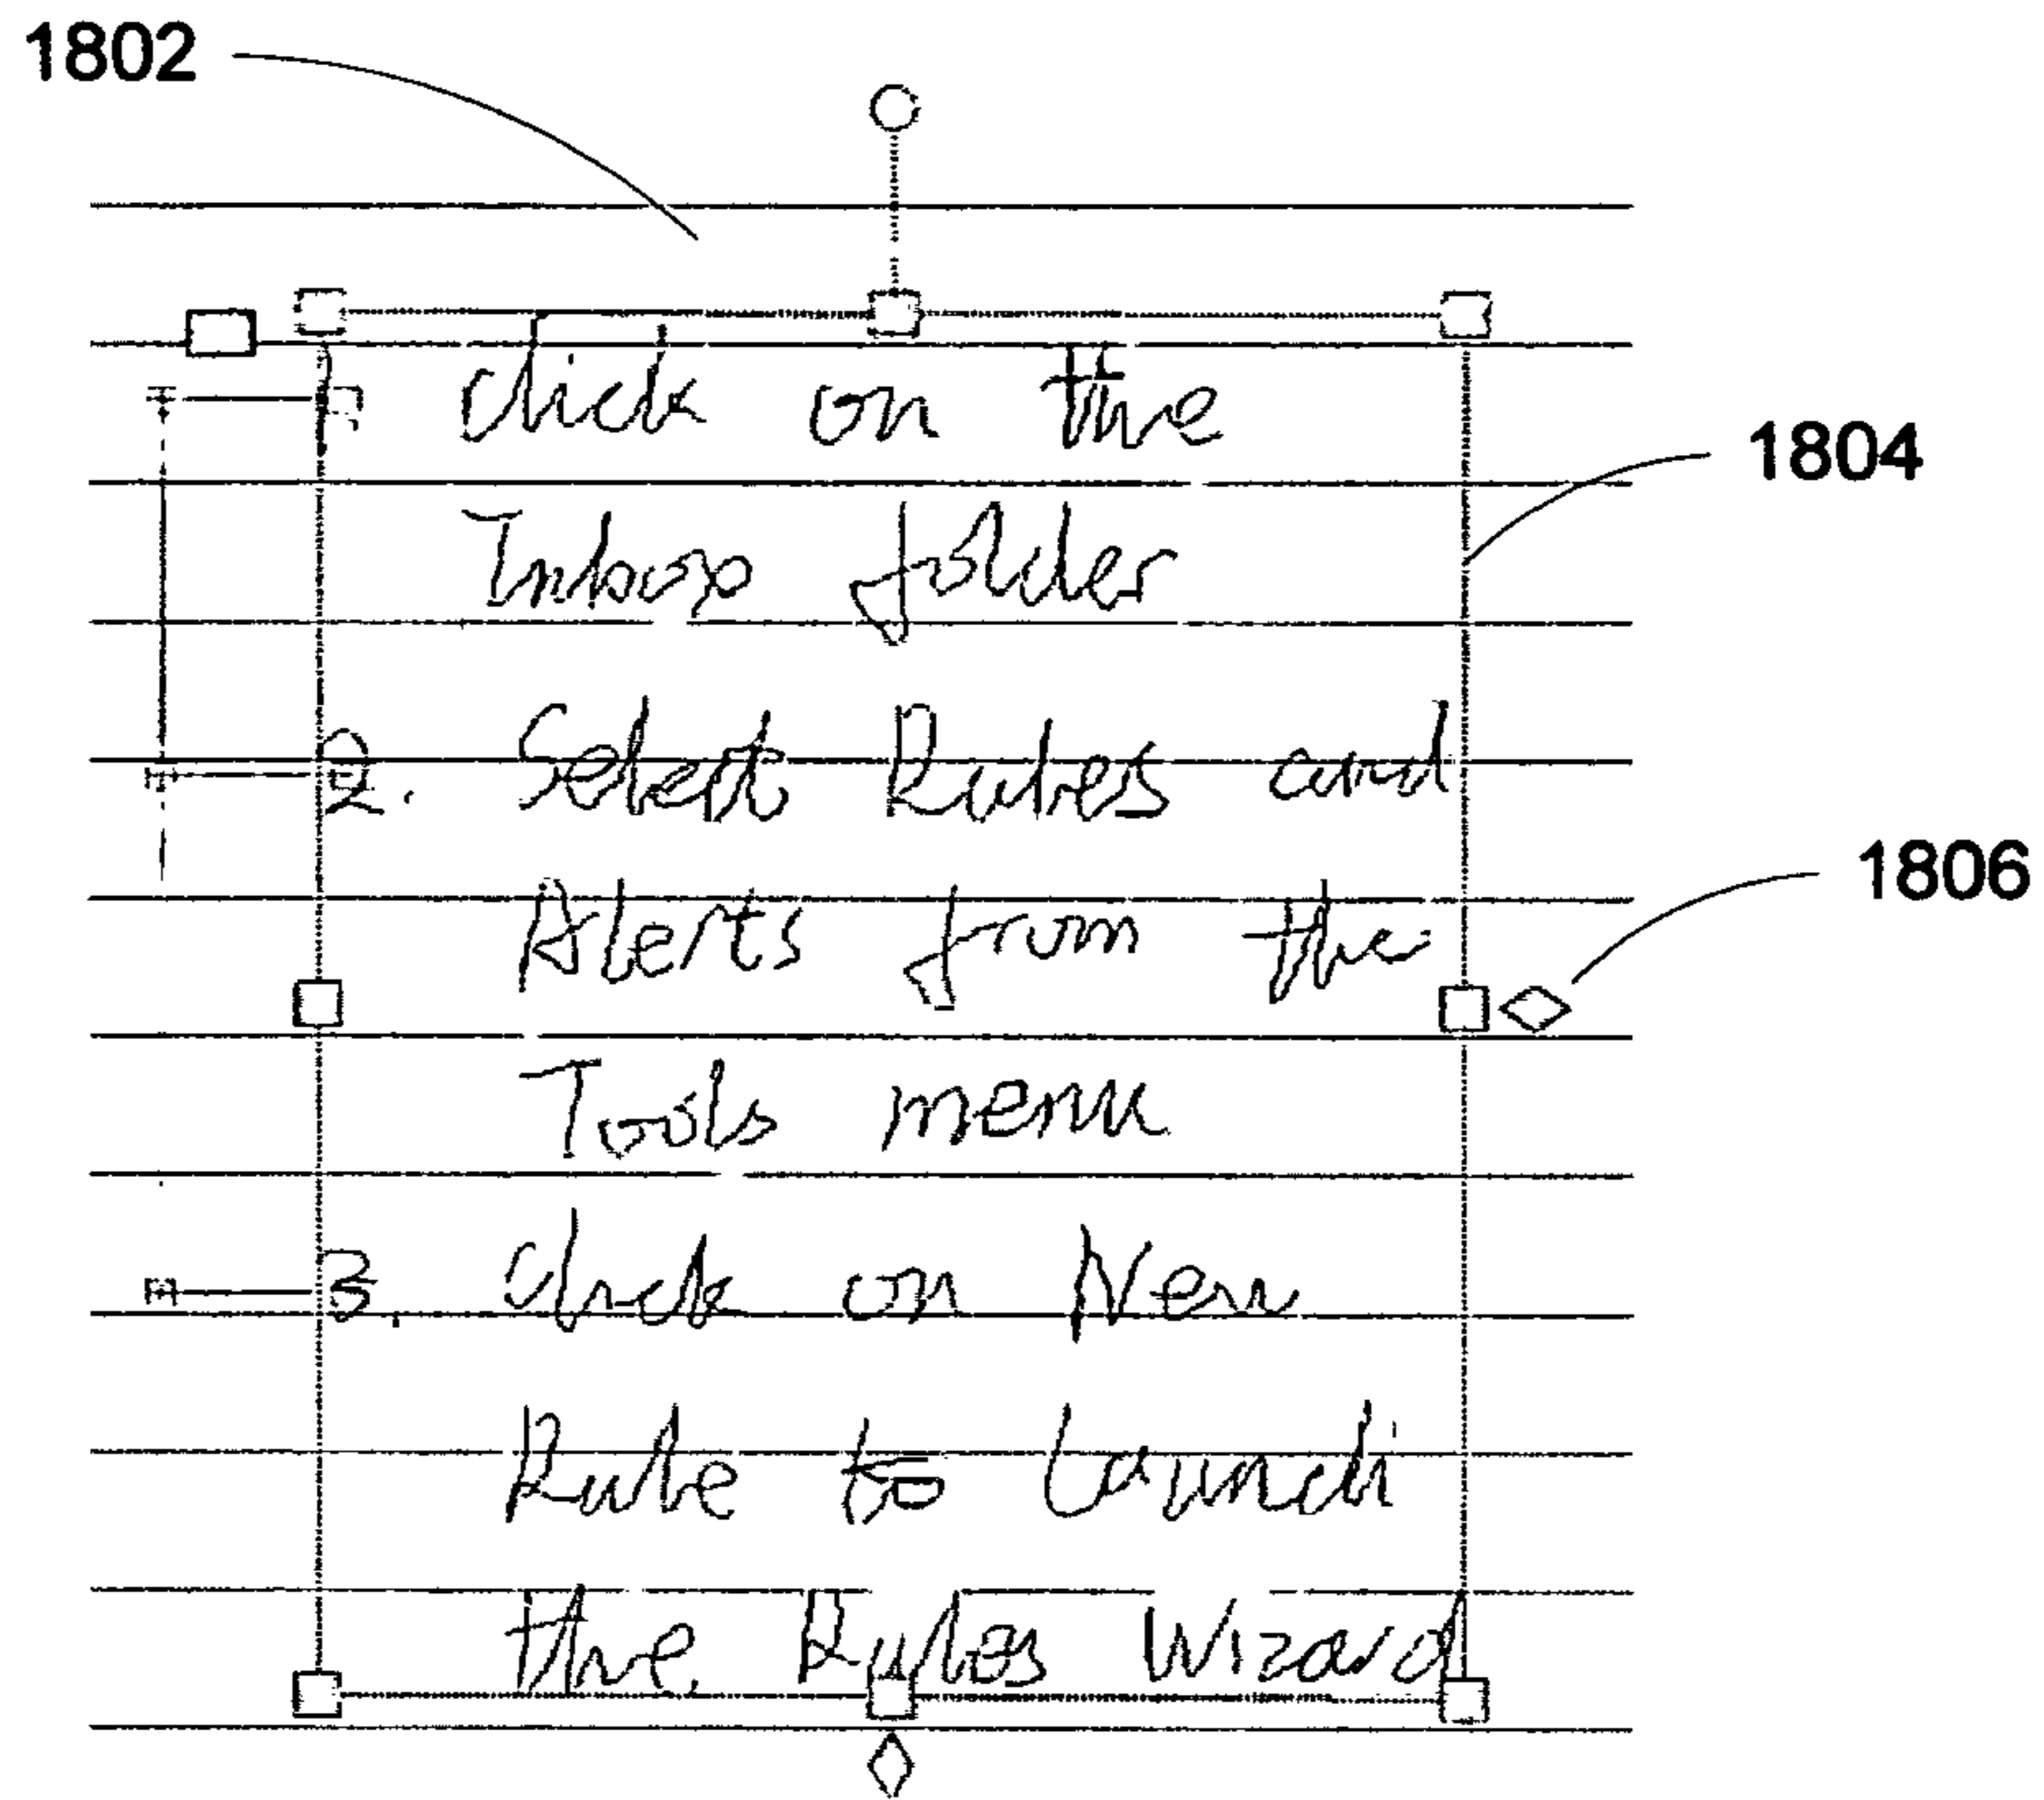 1802
1 Click on the
1804
Inbox folder
2. Select Rules and
1806
Alerts from the
Tools menu
3. Click on New
Rule to launch
the Rules Wizard